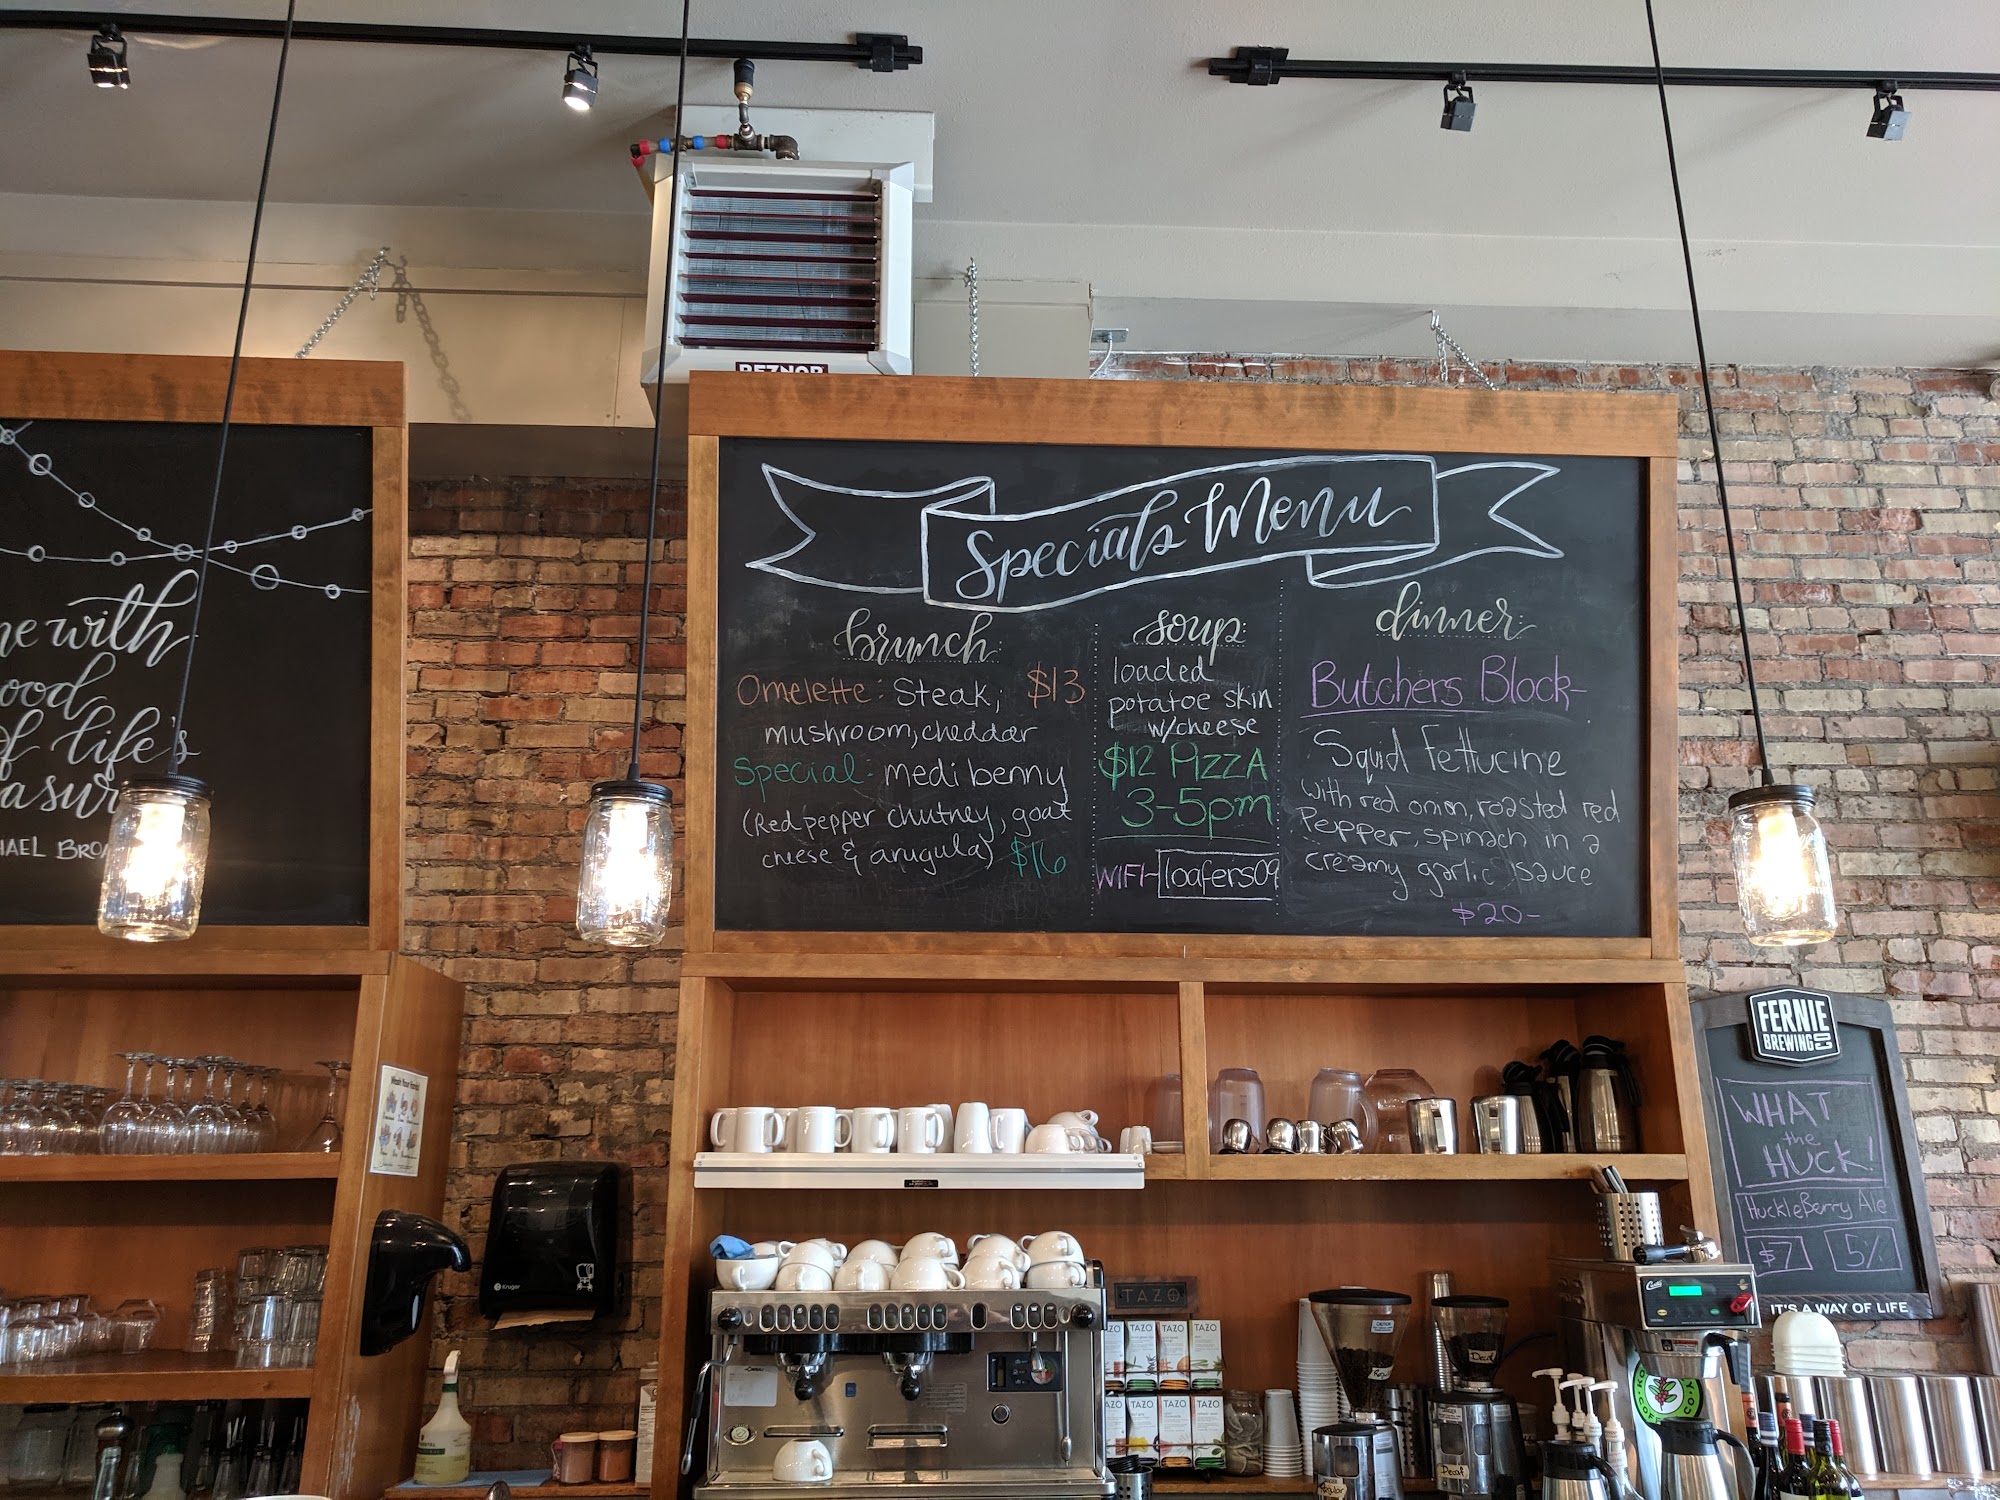 REZNOR
Specials Menu
brunch
Omelette: Steak, $13
mushroom, cheddar
Special: medi benny
(Red pepper chutney, goat
cheese & arugula) $16
soup
loaded
potatoe skin
w/cheese
$12 PIZZA
3-5pm
WIFI-loafers09
dinner
Butchers Block-
Squid Fettucine
with red onion, roasted red
Pepper, spinach in a
creamy garlic sauce
$20-
with
of life's
FERNIE
BREWING CO
WHAT
the
HUCK!
HuckleBerry Ale
$7 5%
IT'S A WAY OF LIFE
Wash Your Hands
Kruger
TAZO
TAZO TAZO TAZO
TAZO TAZO TAZO
Decaf
Decaf
Regular
Curtis